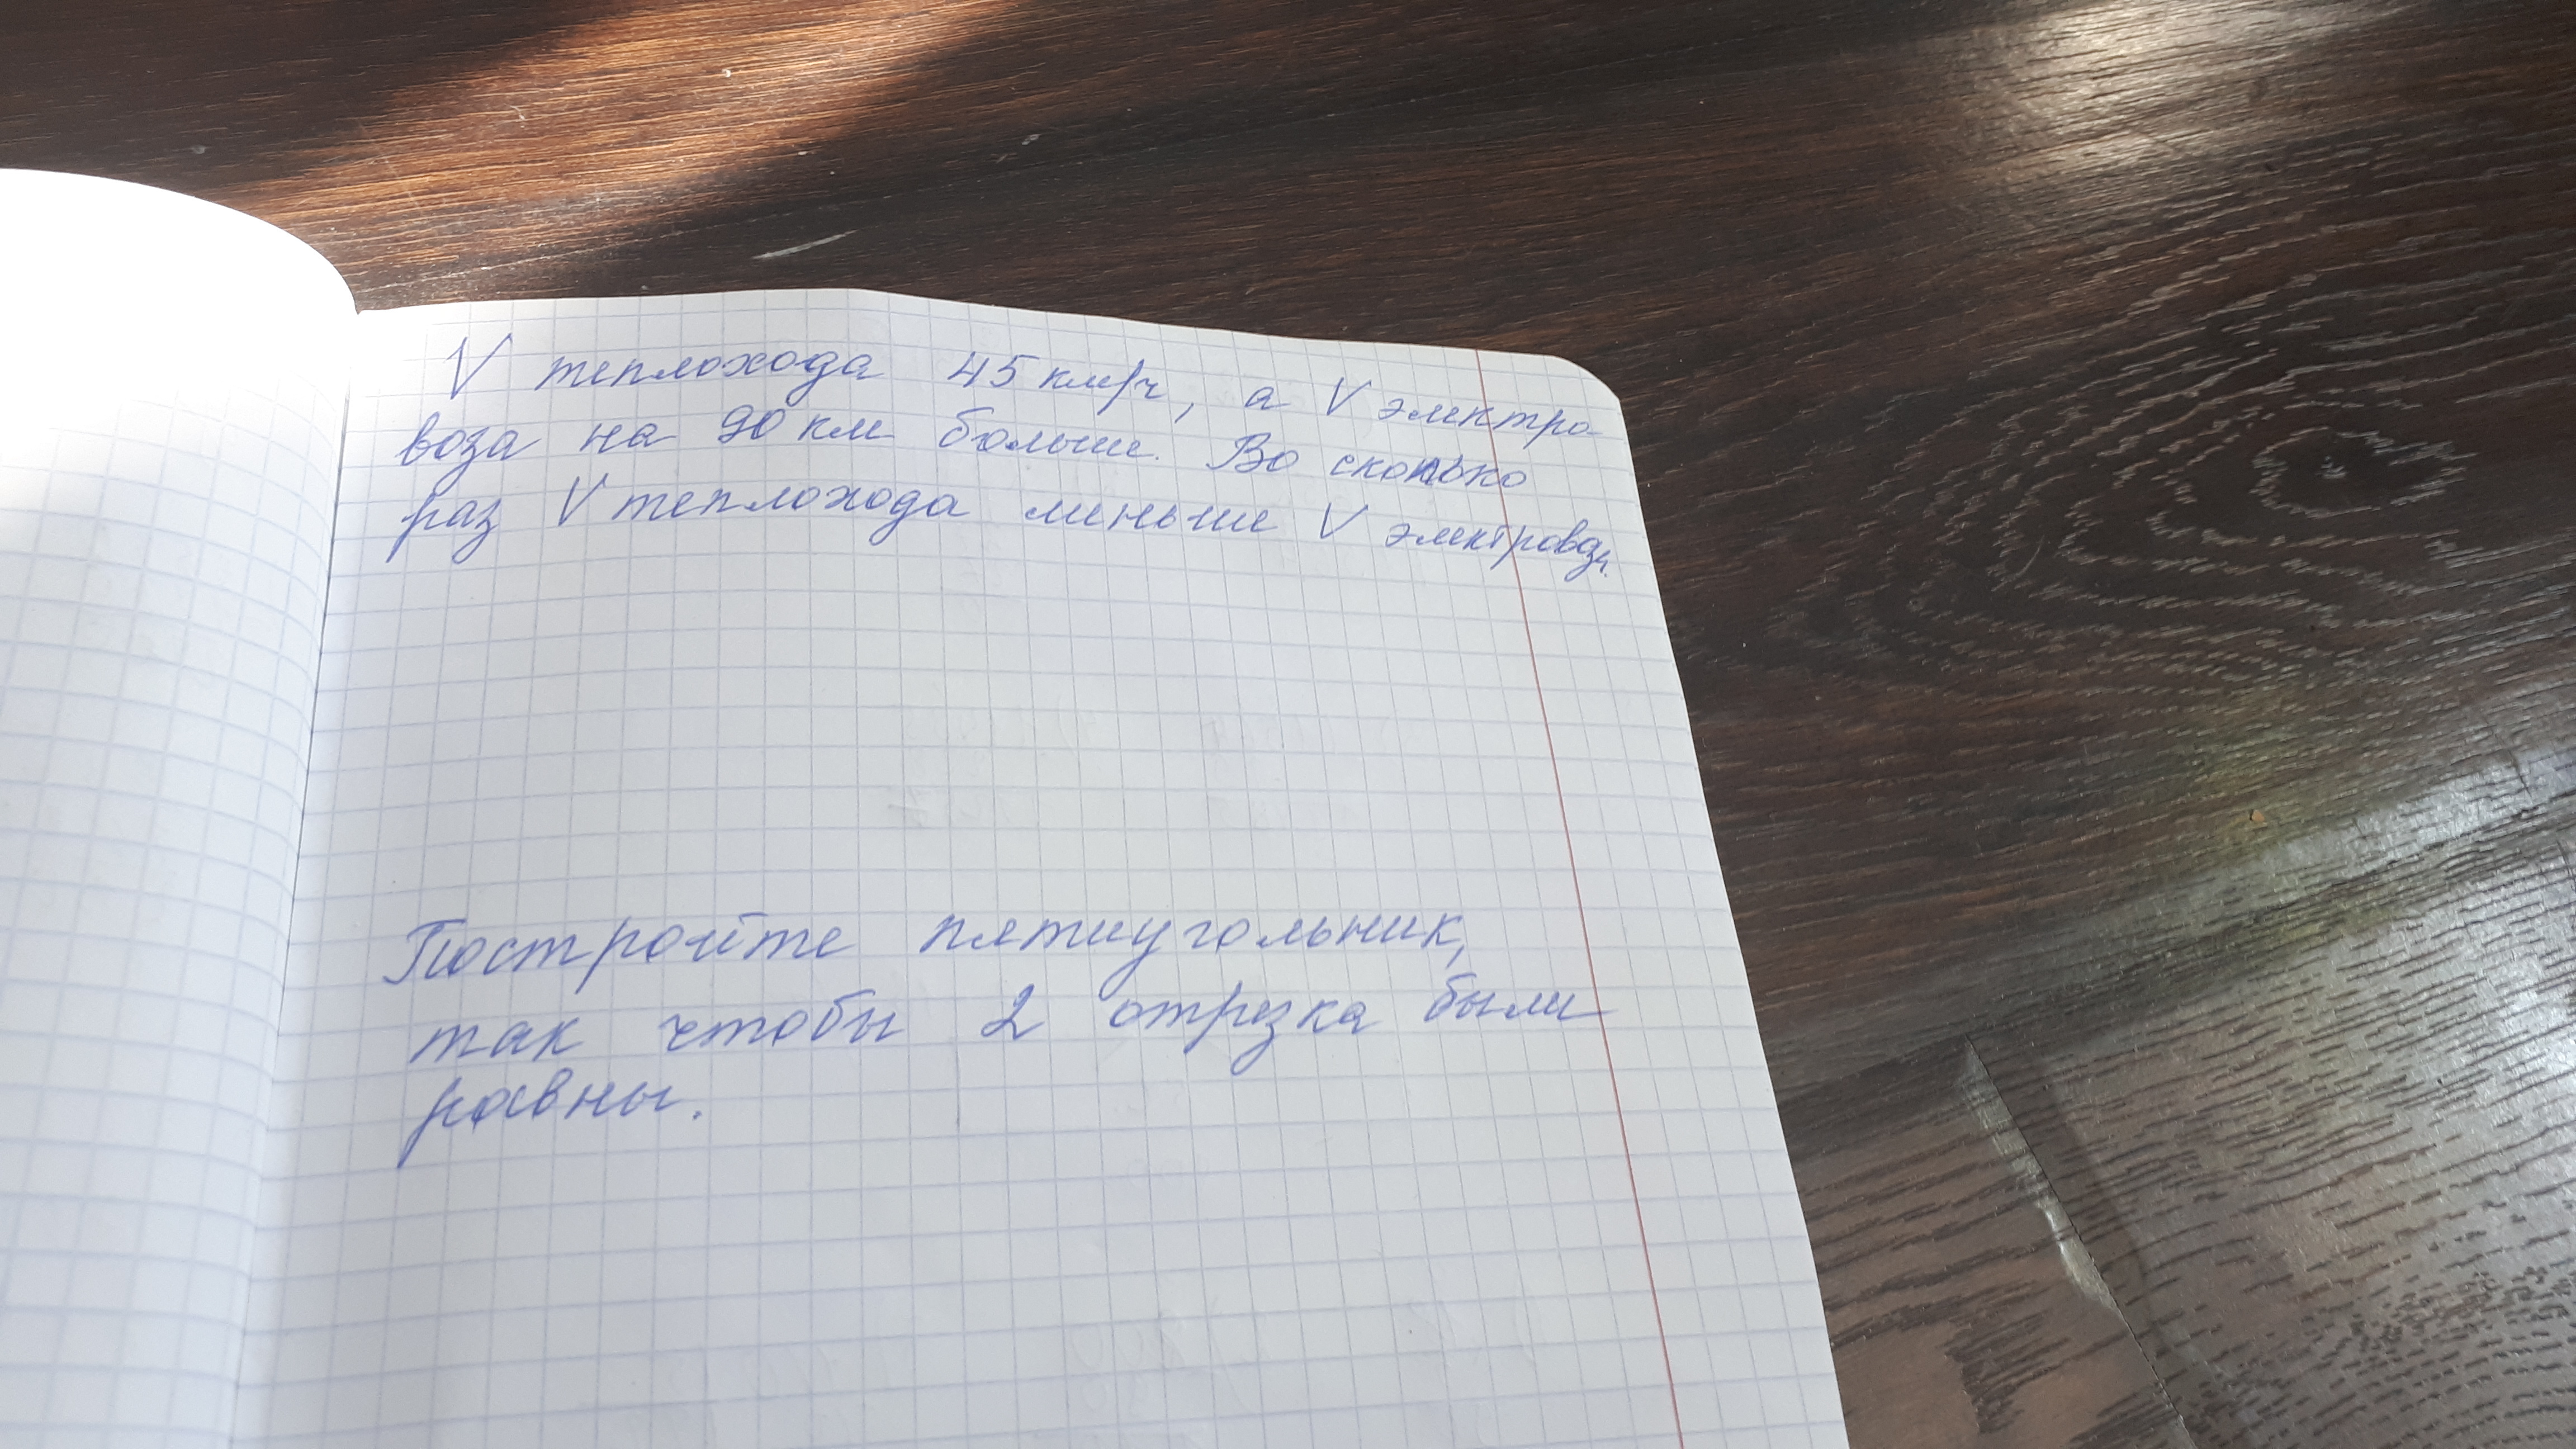 V теплохода 45 км/ч, а V электро-
воза на 90 км больше. Во сколько
раз V теплохода меньше V электровоза.
Постройте пятиугольник,
так чтобы 2 отрезка были
равны.